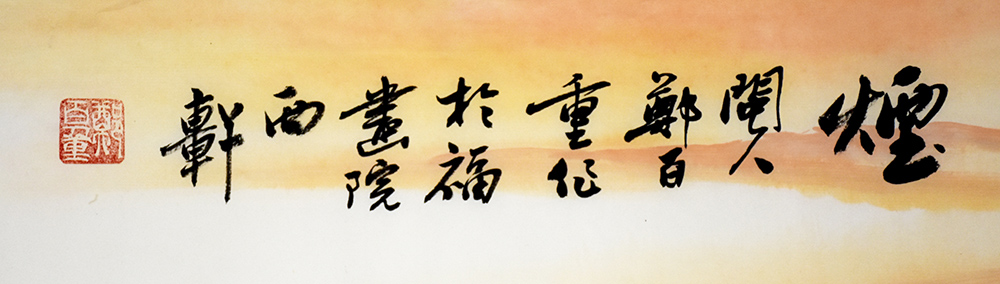 煙
閩人
鄭百
重作
於福
畫院
西
軒
鄭百重